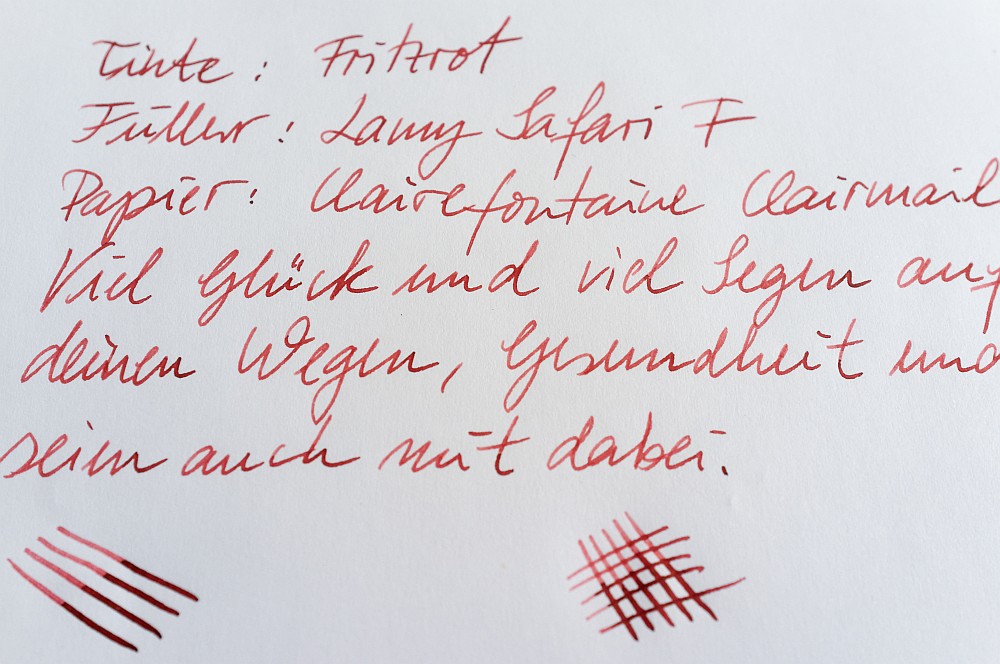 Tinte: Fritzrot
Füller: Lamy Safari F
Papier: Clairefontaine Clairmail
Viel Glück und viel Segen auf
deinen Wegen, Gesundheit und
seien auch mit dabei.